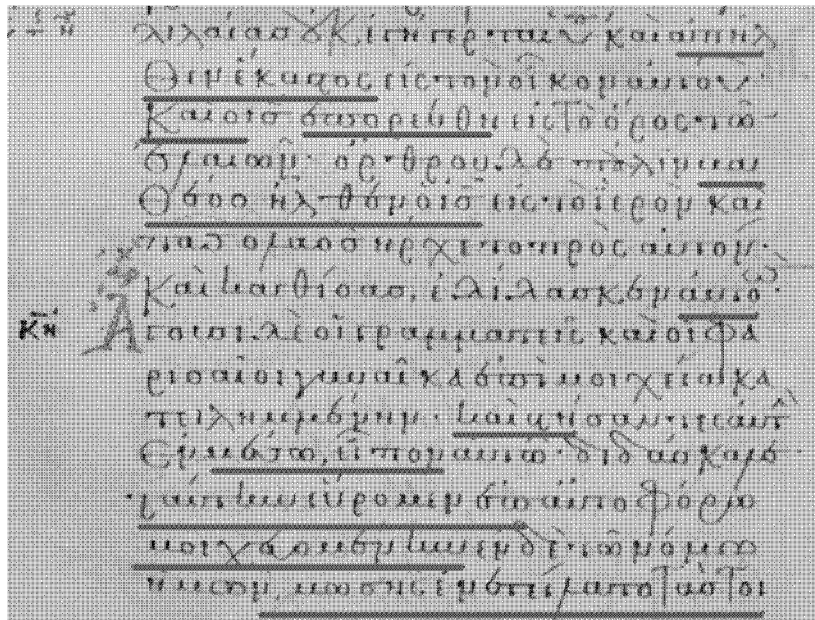 λιλαίας οὐκ ἐγήγερται καὶ ἀπῆλ
θεν ἕκαστος εἰς τὸν οἶκον αὐτοῦ·
Καὶ ὁ ι̅ς̅ ἐπορεύθη εἰς τὸ ὄρος τῶν
ἐλαιῶν· ὄρθρου δὲ πάλιν βα
θέος ἦλθεν ὁ ι̅ς̅ εἰς τὸ ἱερὸν καὶ
πᾶς ὁ λαὸς ἤρχετο πρὸς αὐτόν·
Καὶ καθίσας, ἐδίδασκεν αὐτο
κη Ἄγουσι δὲ οἱ γραμματεῖς καὶ οἱ φα
ρισαῖοι γυναῖκα ἐπὶ μοιχεία κα
τειλημμένην· καὶ στήσαντες αὐτ
ἐν μέσω, εἶπον αὐτῶ· διδάσκαλε·
ταύτην εὕρομεν ἐπαυτοφόρω
μοιχευομένην ἐν δὲ τῶ νόμω
ἡμῶν, μωσῆς ἐνετείλατο τὰς τοι